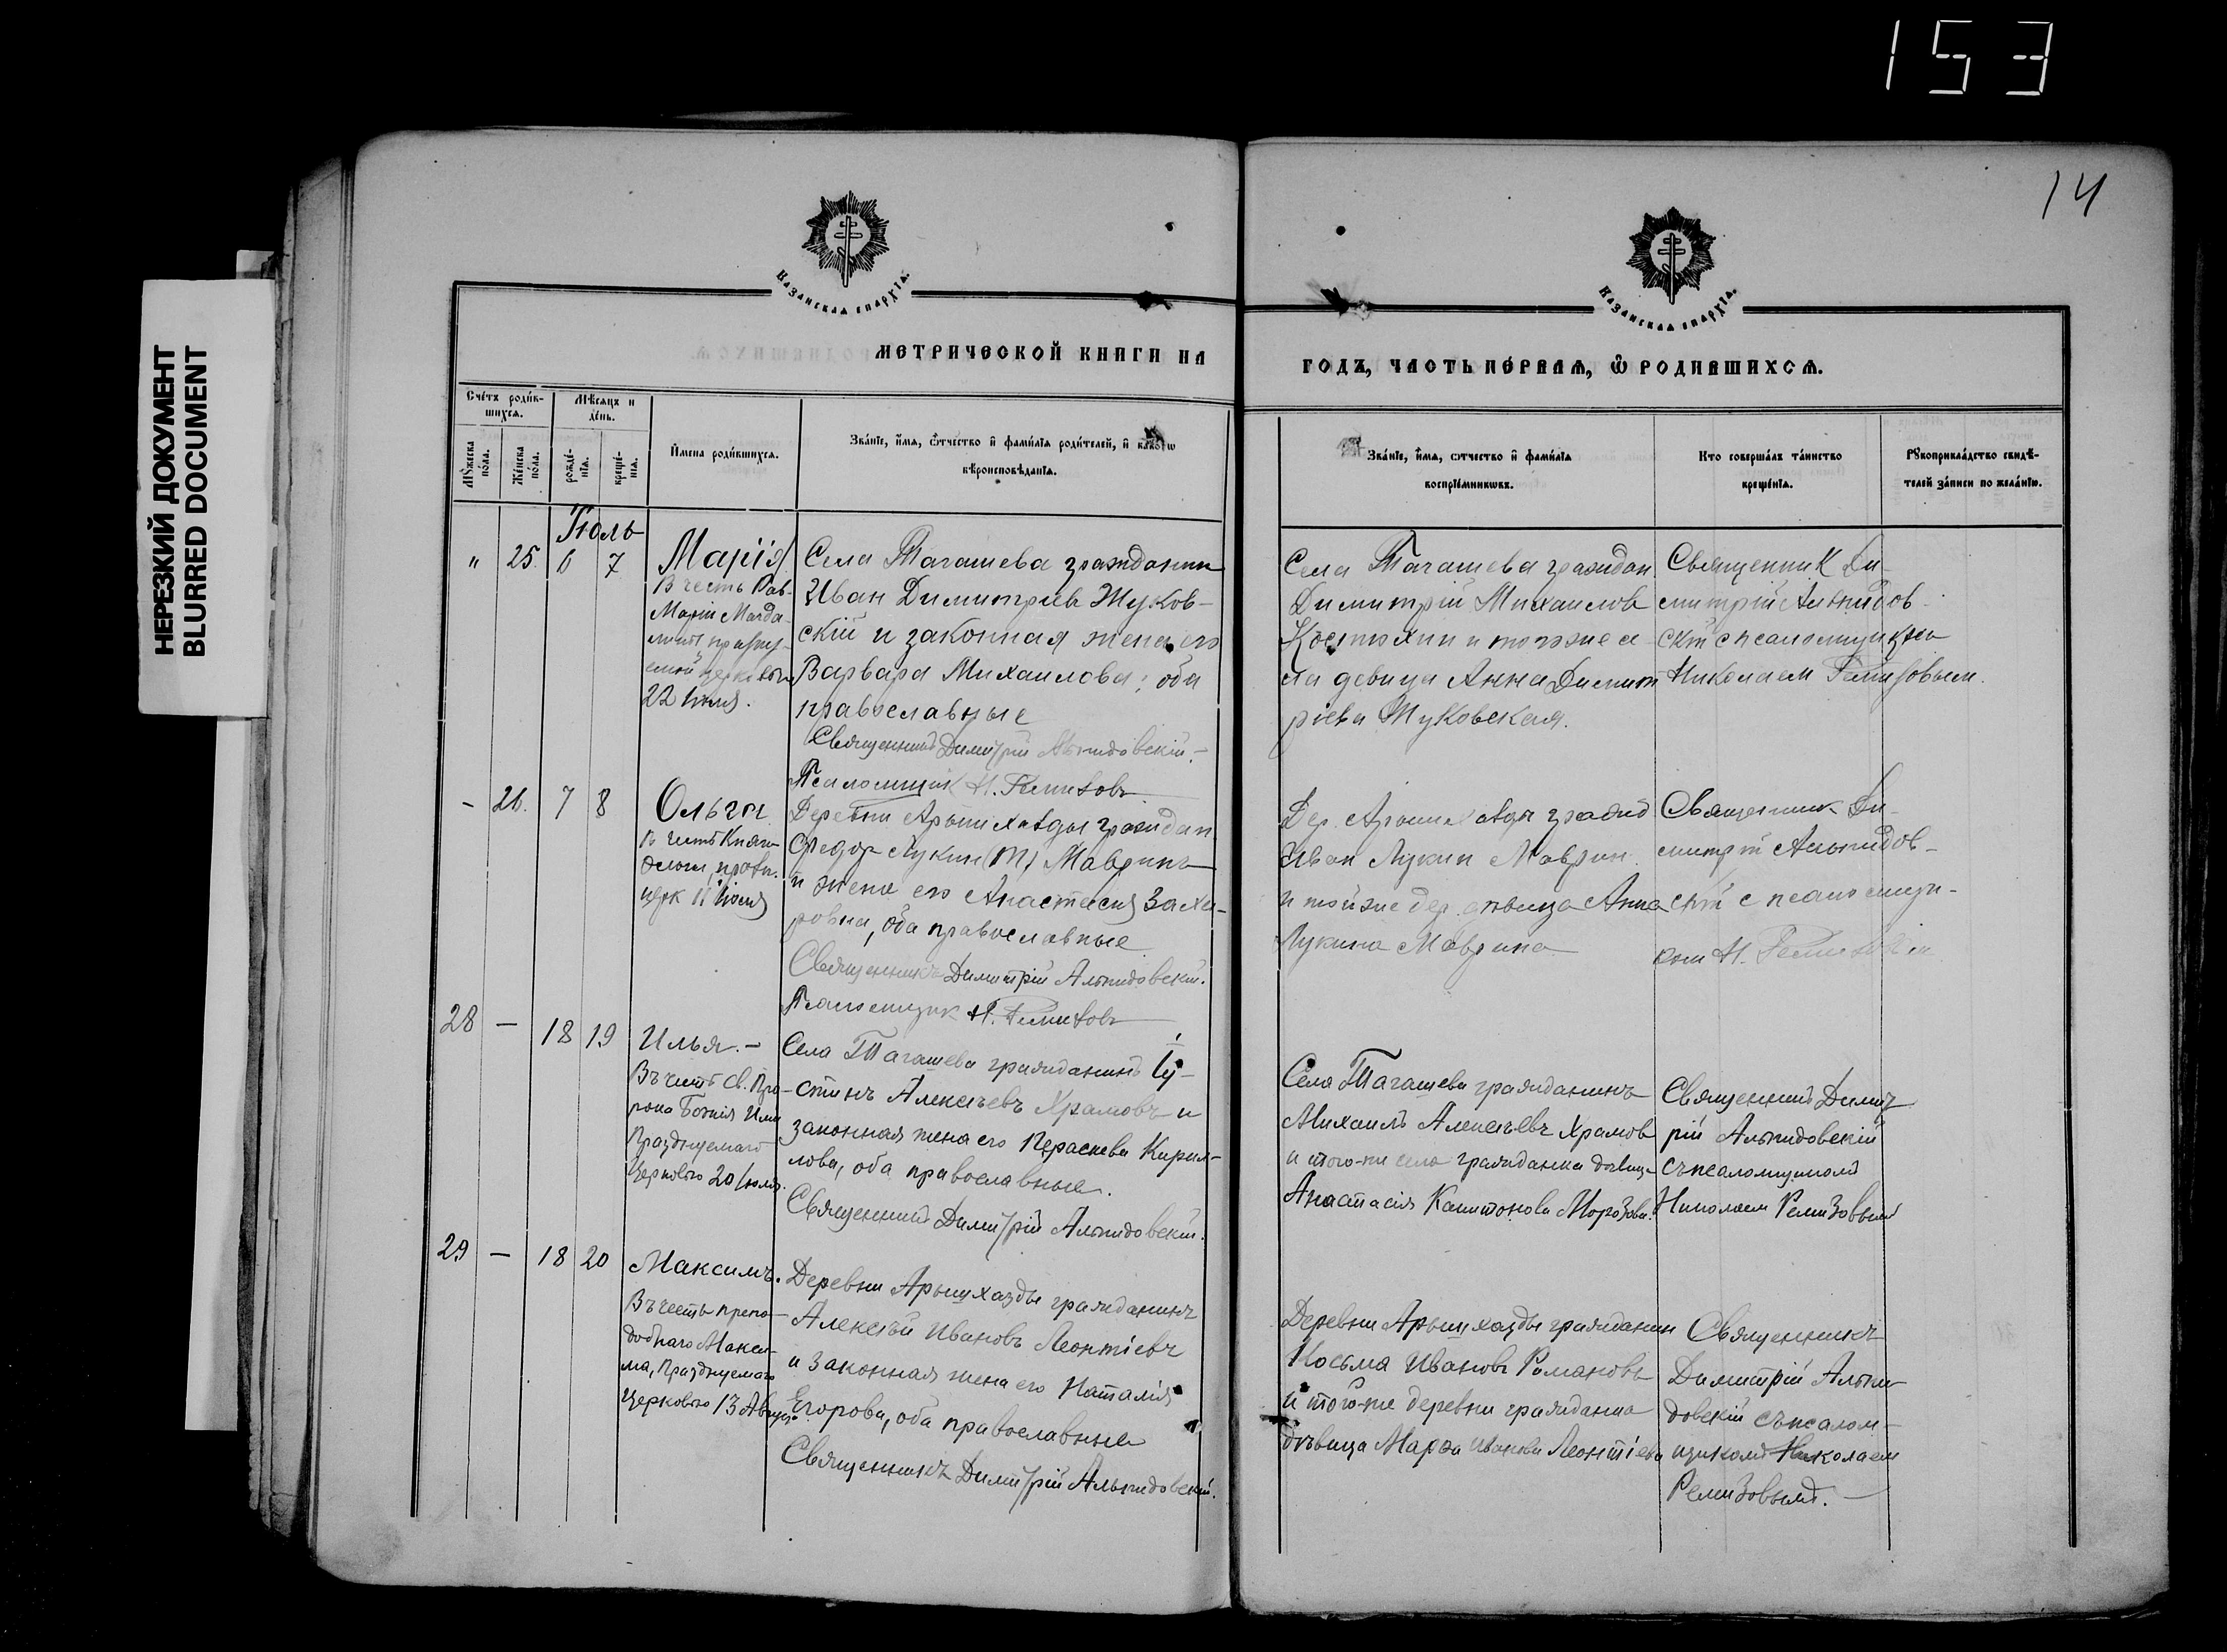 153
НЕРЕЗКИЙ ДОКУМЕНТ
BLURRED DOCUMENT
14
Казанская епархїа.
Казанская епархїа.
МЕТРИЧЕСКОЙ КНИГИ НА
ГОДЪ, ЧАСТЬ ПЕРВАЯ, Ѽ РОДИВШИХСЯ.
Счетъ родив-
шихся.
Мѣсяцъ и
день.
Мужеска
пола.
Женска
пола.
рожде-
нїя.
креще-
нїя.
Имена родившихся.
Званїе, имя, отчество и фамилїя родителей, и какого
вѣроисповѣданїя.
Званїе, имя, отчество и фамилїя
воспрїемниковъ.
Кто совершалъ таинство
крещенїя.
Рукоприкладство свидѣ-
телей записи по желанїю.
Июль
" 25. 6 7
Марія
В честь Рав-
Маріи Магда-
22 Июля.
Села Тагашева гражданин
Иван Димитріев Жуков-
скій и законная жена его
Варвара Михаилова; оба
православные
Священникъ Димитрій Альпидовскій.
Псаломщик Н. Ремизовъ
Села Тагашева граждан.
Димитрій Михаилов
Костюхин и тогоже се-
ла девица Анна Димит
ріева Жуковская.
Священник Ди-
митрій Альпидов-
скій с псаломщиком
Николаем Ремизовым.
- 26. 7 8
Ольга
В честь Княг.
Ольги, празн.
церк 11 Июля
Деревни Арышхазды граждан
Федор Лукин (Т) Маврин
и жена его Анастасия Заха-
ровна, оба православные
Священникъ Димитрій Альпидовскій.
Псаломщик Н. Ремизовъ
Дер. Арышхазды гражд
Иван Лукин Маврин
и тойже дер. девица Анна
Лукина Маврина
Священник Ди-
митрій Альпидов-
скій с псаломщи-
ком Н. Ремизовым
28 - 18 19
Илья. -
Въ честь Св. Про-
рока Божія Ильи
Празднуемаго
Церковью 20 Июля.
Села Тагашева гражданинъ Іу-
стинъ Алексѣевъ Храмовъ и
законная жена его Параскева Кирил-
лова, оба православные.
Священникъ Димитрій Альпидовскій.
Села Тагашева гражданинъ
Михаилъ Алексѣевъ Храмов
и того-же села гражданка дѣвица
Анастасія Капитонова Морозова.
Священникъ Димит
рій Альпидовскій
съ псаломщикомъ
Николаем Ремизовымъ
29 - 18 20
Максимъ.
Въ честь препо-
добнаго Макси-
ма, Празднуемаго
Церковью 13 Август.
Деревни Арышхазды гражданинъ
Алексѣй Ивановъ Леонтіевъ
и законная жена его Наталія
Егорова, оба православные
Священникъ Димитрій Альпидовскій.
Деревни Арышхазды гражданин
Косьма Ивановъ Романовъ
и того-же деревни гражданка
дѣвица Марѳа Иванова Леонтіева
Священникъ
Димитрій Альпи-
довскій съ псалом-
щикомъ Николаем
Ремизовымъ. -